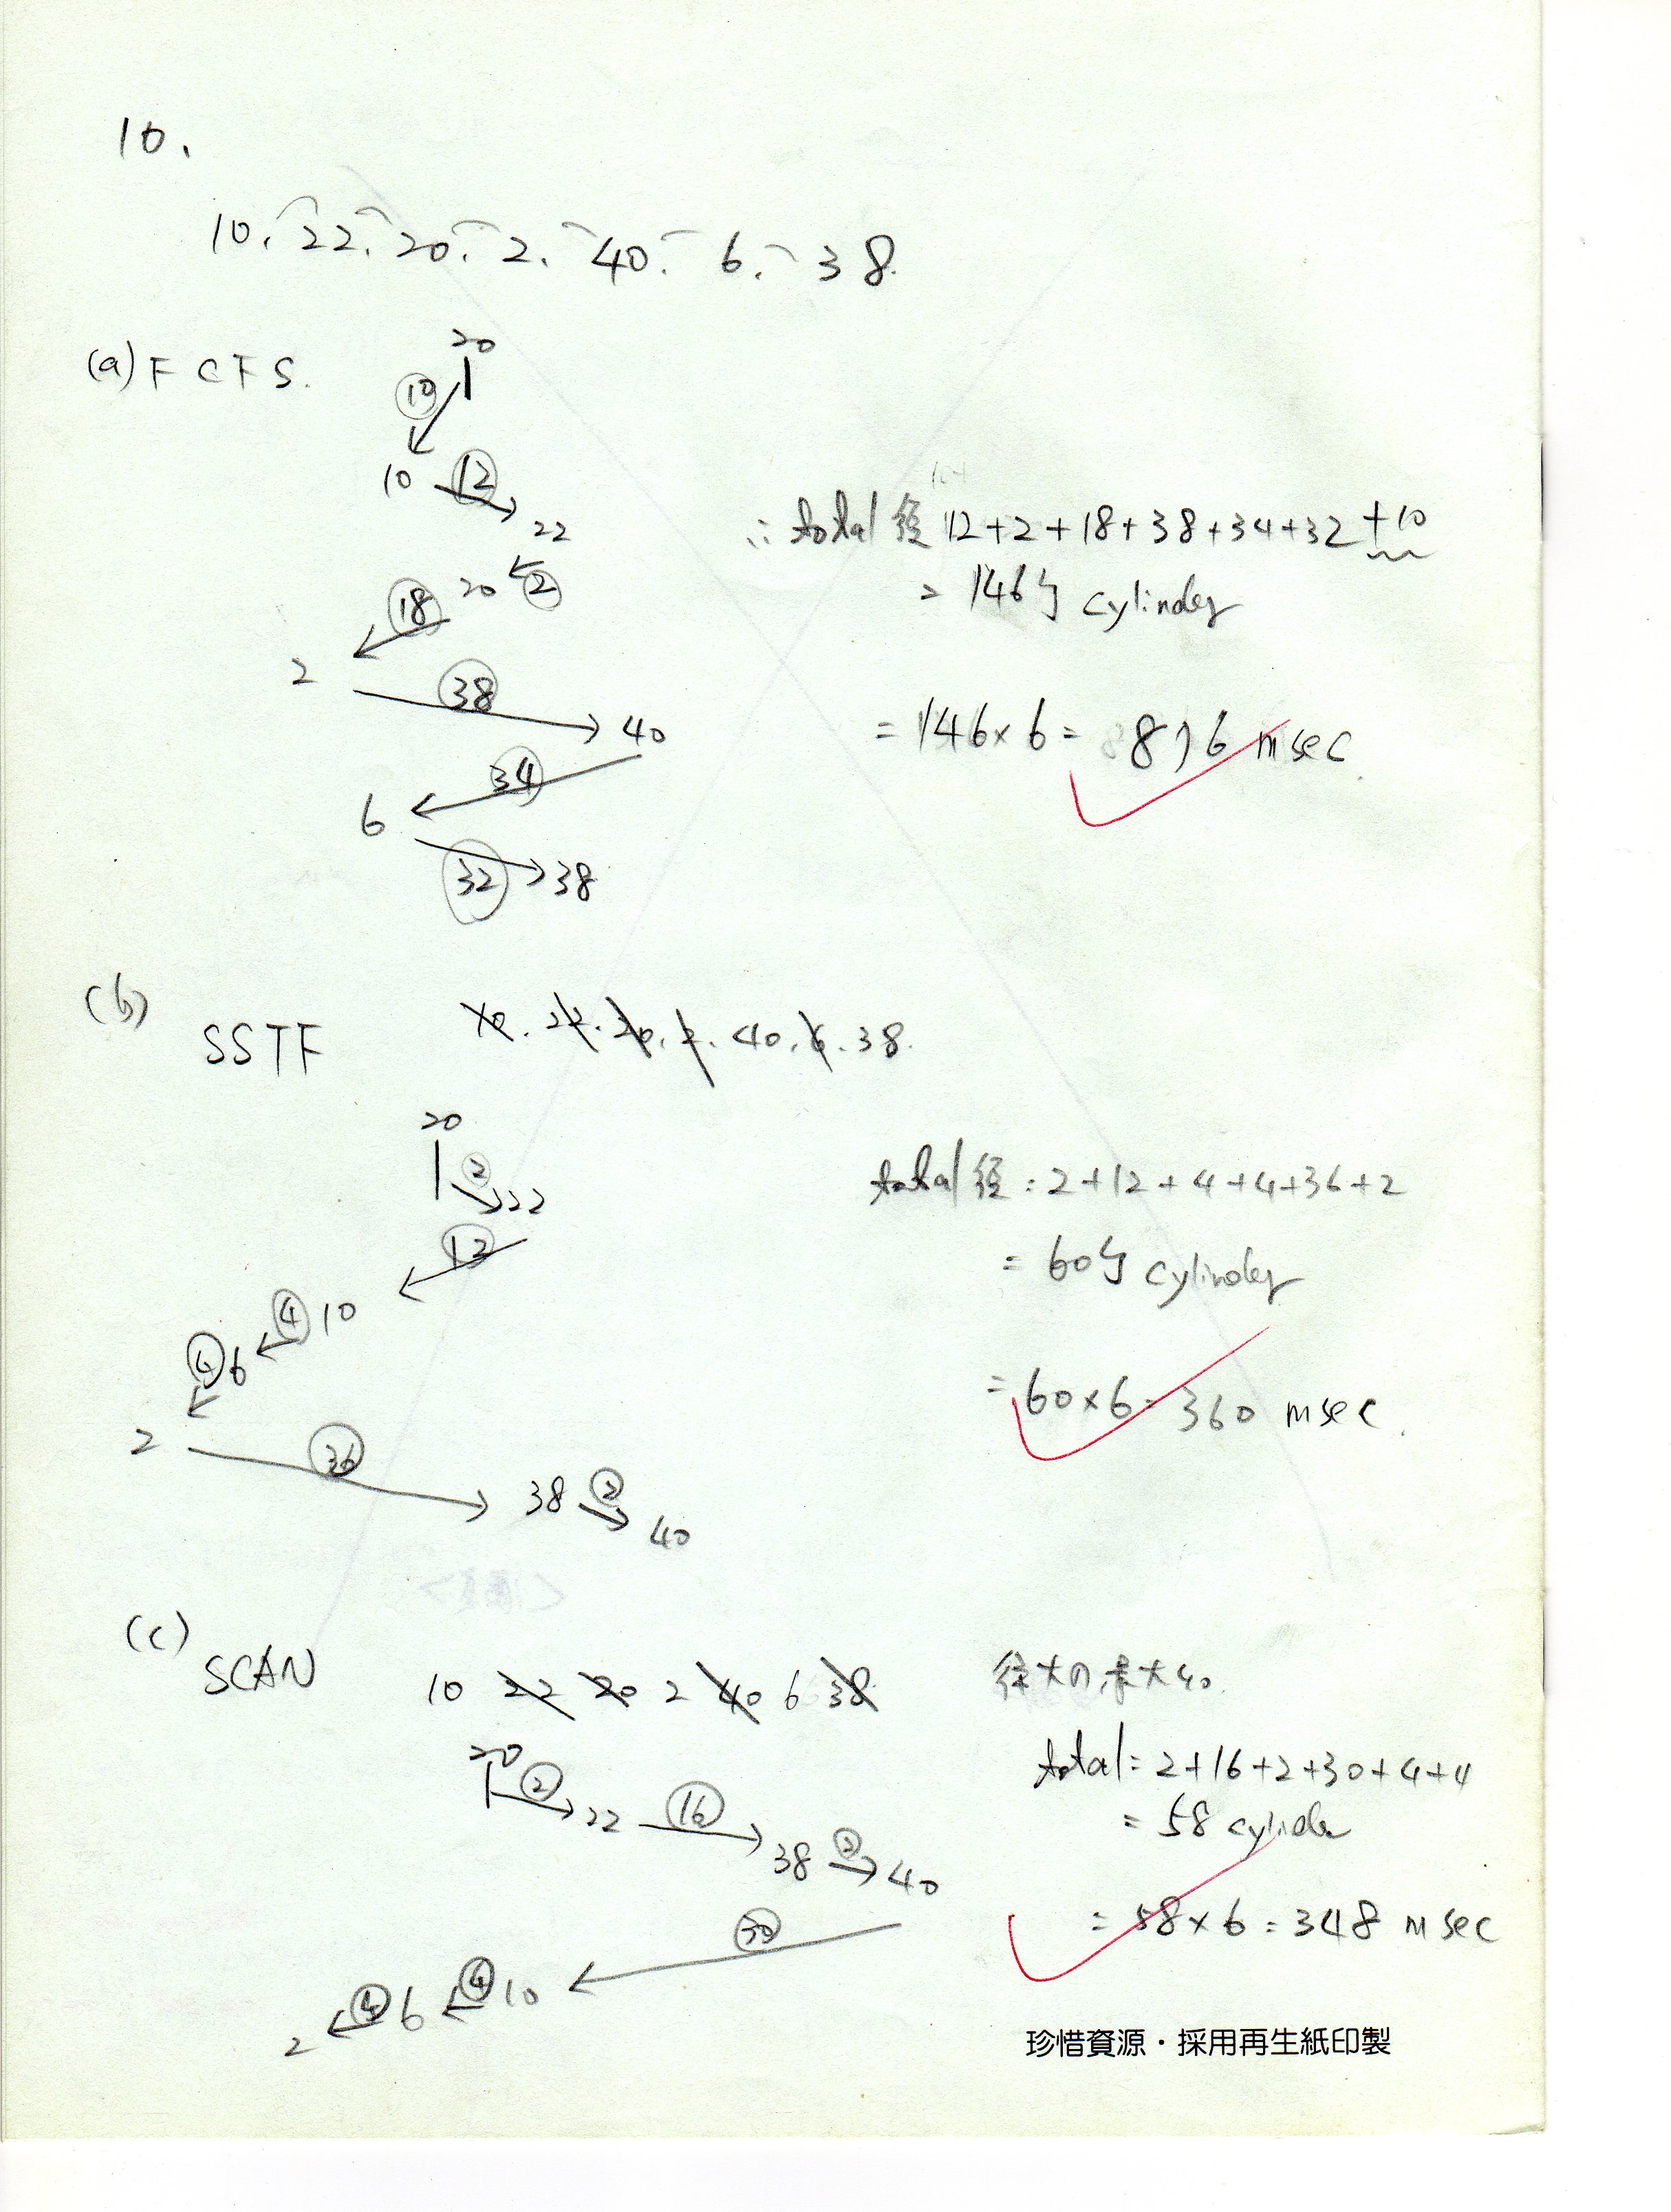 10.
10、22、20、2、40、6、38
(a) FCFS.
20
10
10 12
22
20 2
18
2
38
40
34
6
32 38
∴ total 經 12+2+18+38+34+32+10
= 146个 cylinder
= 146×6 = 876 msec.
(b)
SSTF
10. 22. 20. 2. 40. 6. 38.
20
2
22
12
4 10
4 6
2
36
38 2
40
total 經: 2+12+4+4+36+2
= 60个 cylinder
= 60×6 = 360 msec.
(c)
SCAN
10 22 20 2 40 6 38
20
2
22 16
38 2 40
30
4 6 4 10
2
往大の,最大40.
total = 2+16+2+30+4+4
= 58 cylinder
= 58×6 = 348 msec
珍惜資源・採用再生紙印製